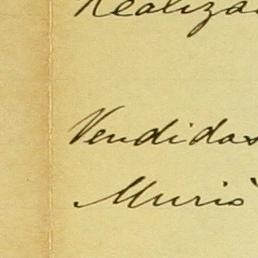 Realiza
Vendidas
Murió